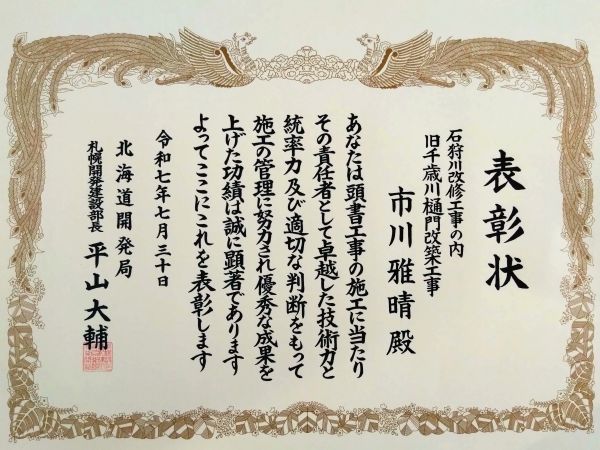 表彰状
石狩川改修工事の内
旧千歳川樋門改築工事
市川雅晴殿
あなたは頭書工事の施工に当たり
その責任者として卓越した技術力と
統率力及び適切な判断をもって
施工の管理に努力され優秀な成果を
上げた功績は誠に顕著であります
よってここにこれを表彰します
令和七年七月三十日
北海道開発局
札幌開発建設部長 平山大輔